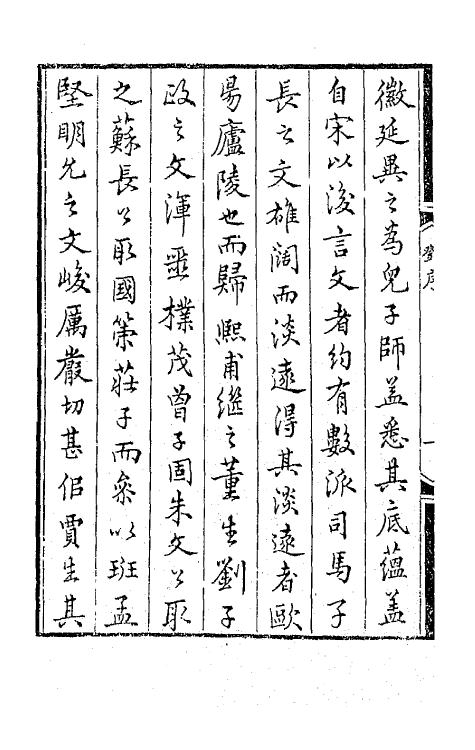 徽延異之為兒子師蓋悉其底蘊蓋
自宋以後言文者約有數派司馬子
長之文雄闊而淡遠得其淡遠者歐
陽廬陵也而歸熙甫繼之董生劉子
政之文渾噩樸茂曾子固朱文公取
之蘇長公取國策莊子而參以班孟
堅明允之文峻厲嚴切甚佀賈生其
序
一